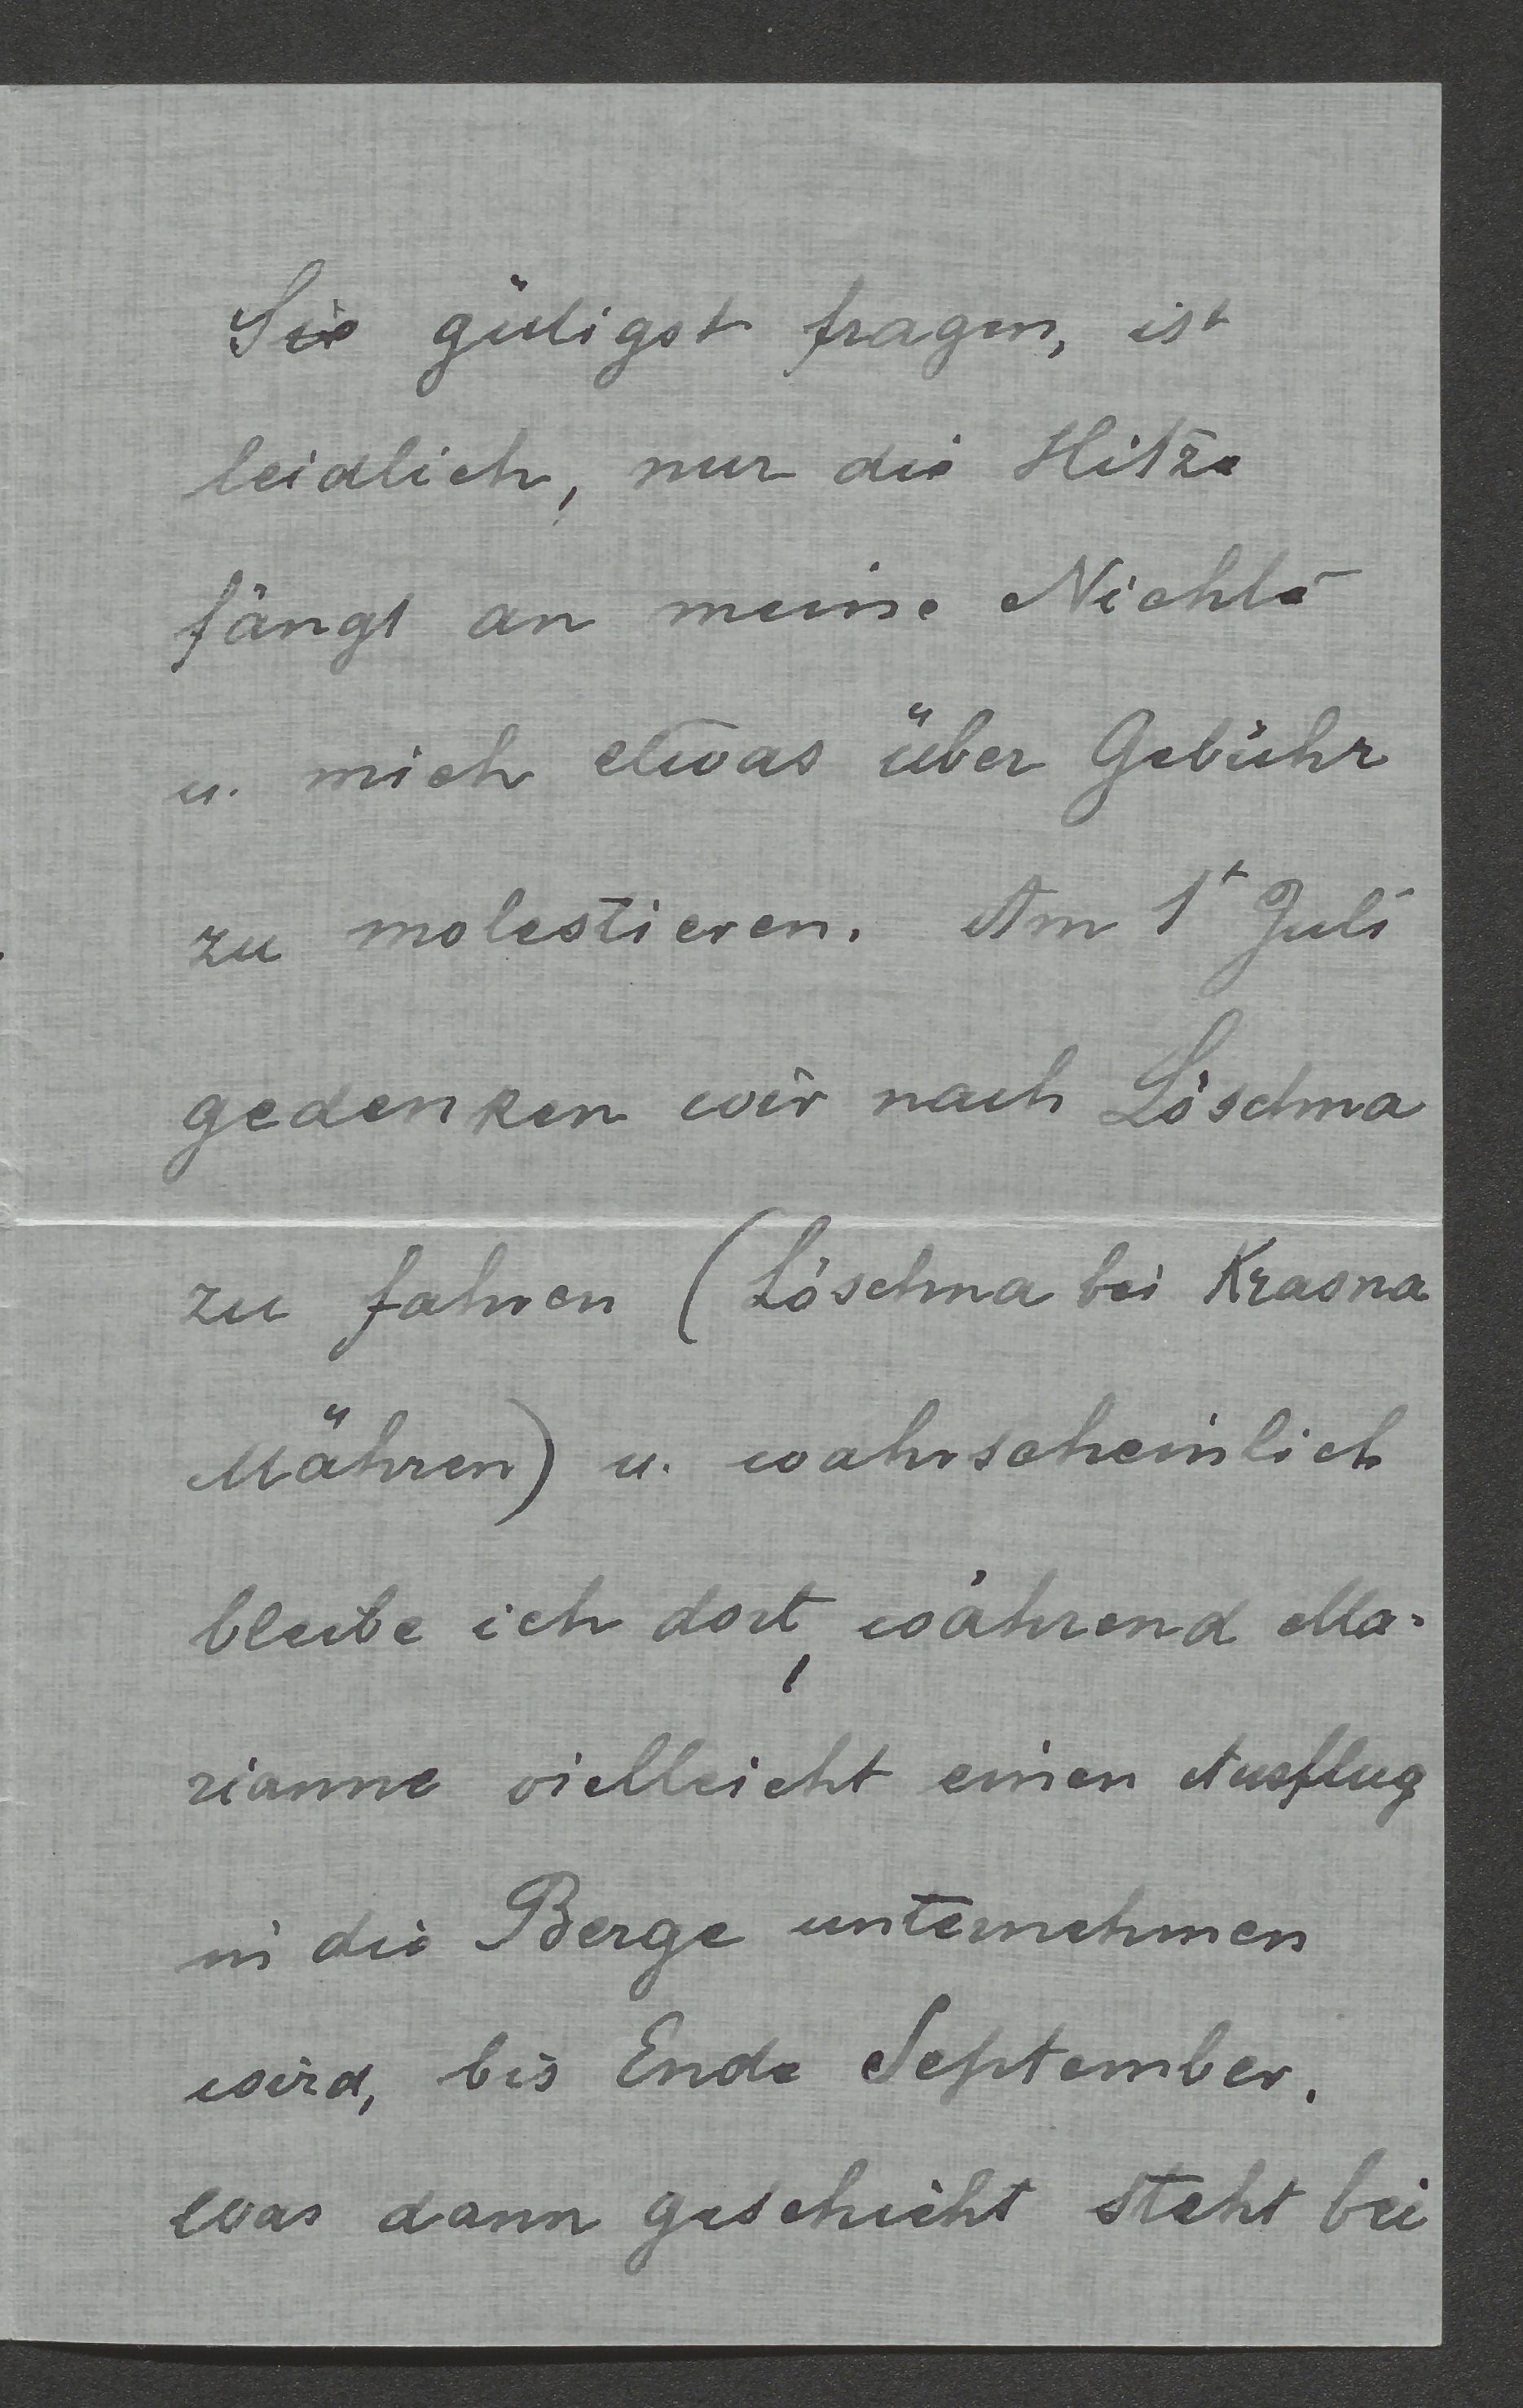 Sie gütigst fragen, ist
leidlich, nur die Hitze
fängt an meine Nichte
u. mich etwas über Gebühr
zu molestieren. Am 1t Juli
gedenken wir nach Löschna
zu fahren (Löschna bei Krasna
Mähren) u. wahrscheinlich
bleibe ich dort, während Ma-
rianne vielleicht einen Ausflug
in die Berge unternehmen
wird, bis Ende September.
Was dann geschieht steht bei